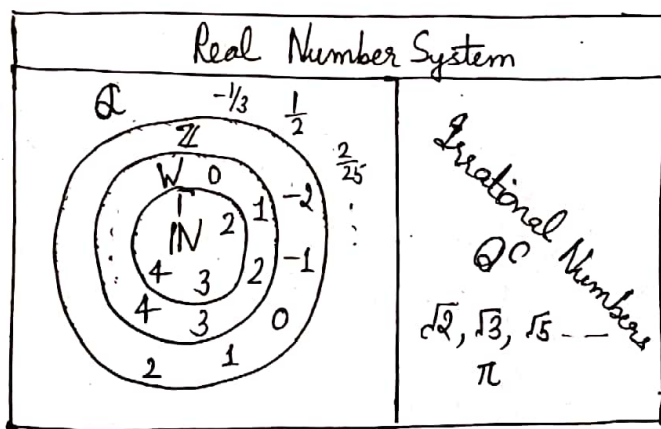 Real Number System
Q -1/3 1/2
2/25
Z
W 0
1 -2
1 2
IN
2 -1
4 3
4 3 0
2 1
Irrational Numbers
QC
√2, √3, √5 - -
π